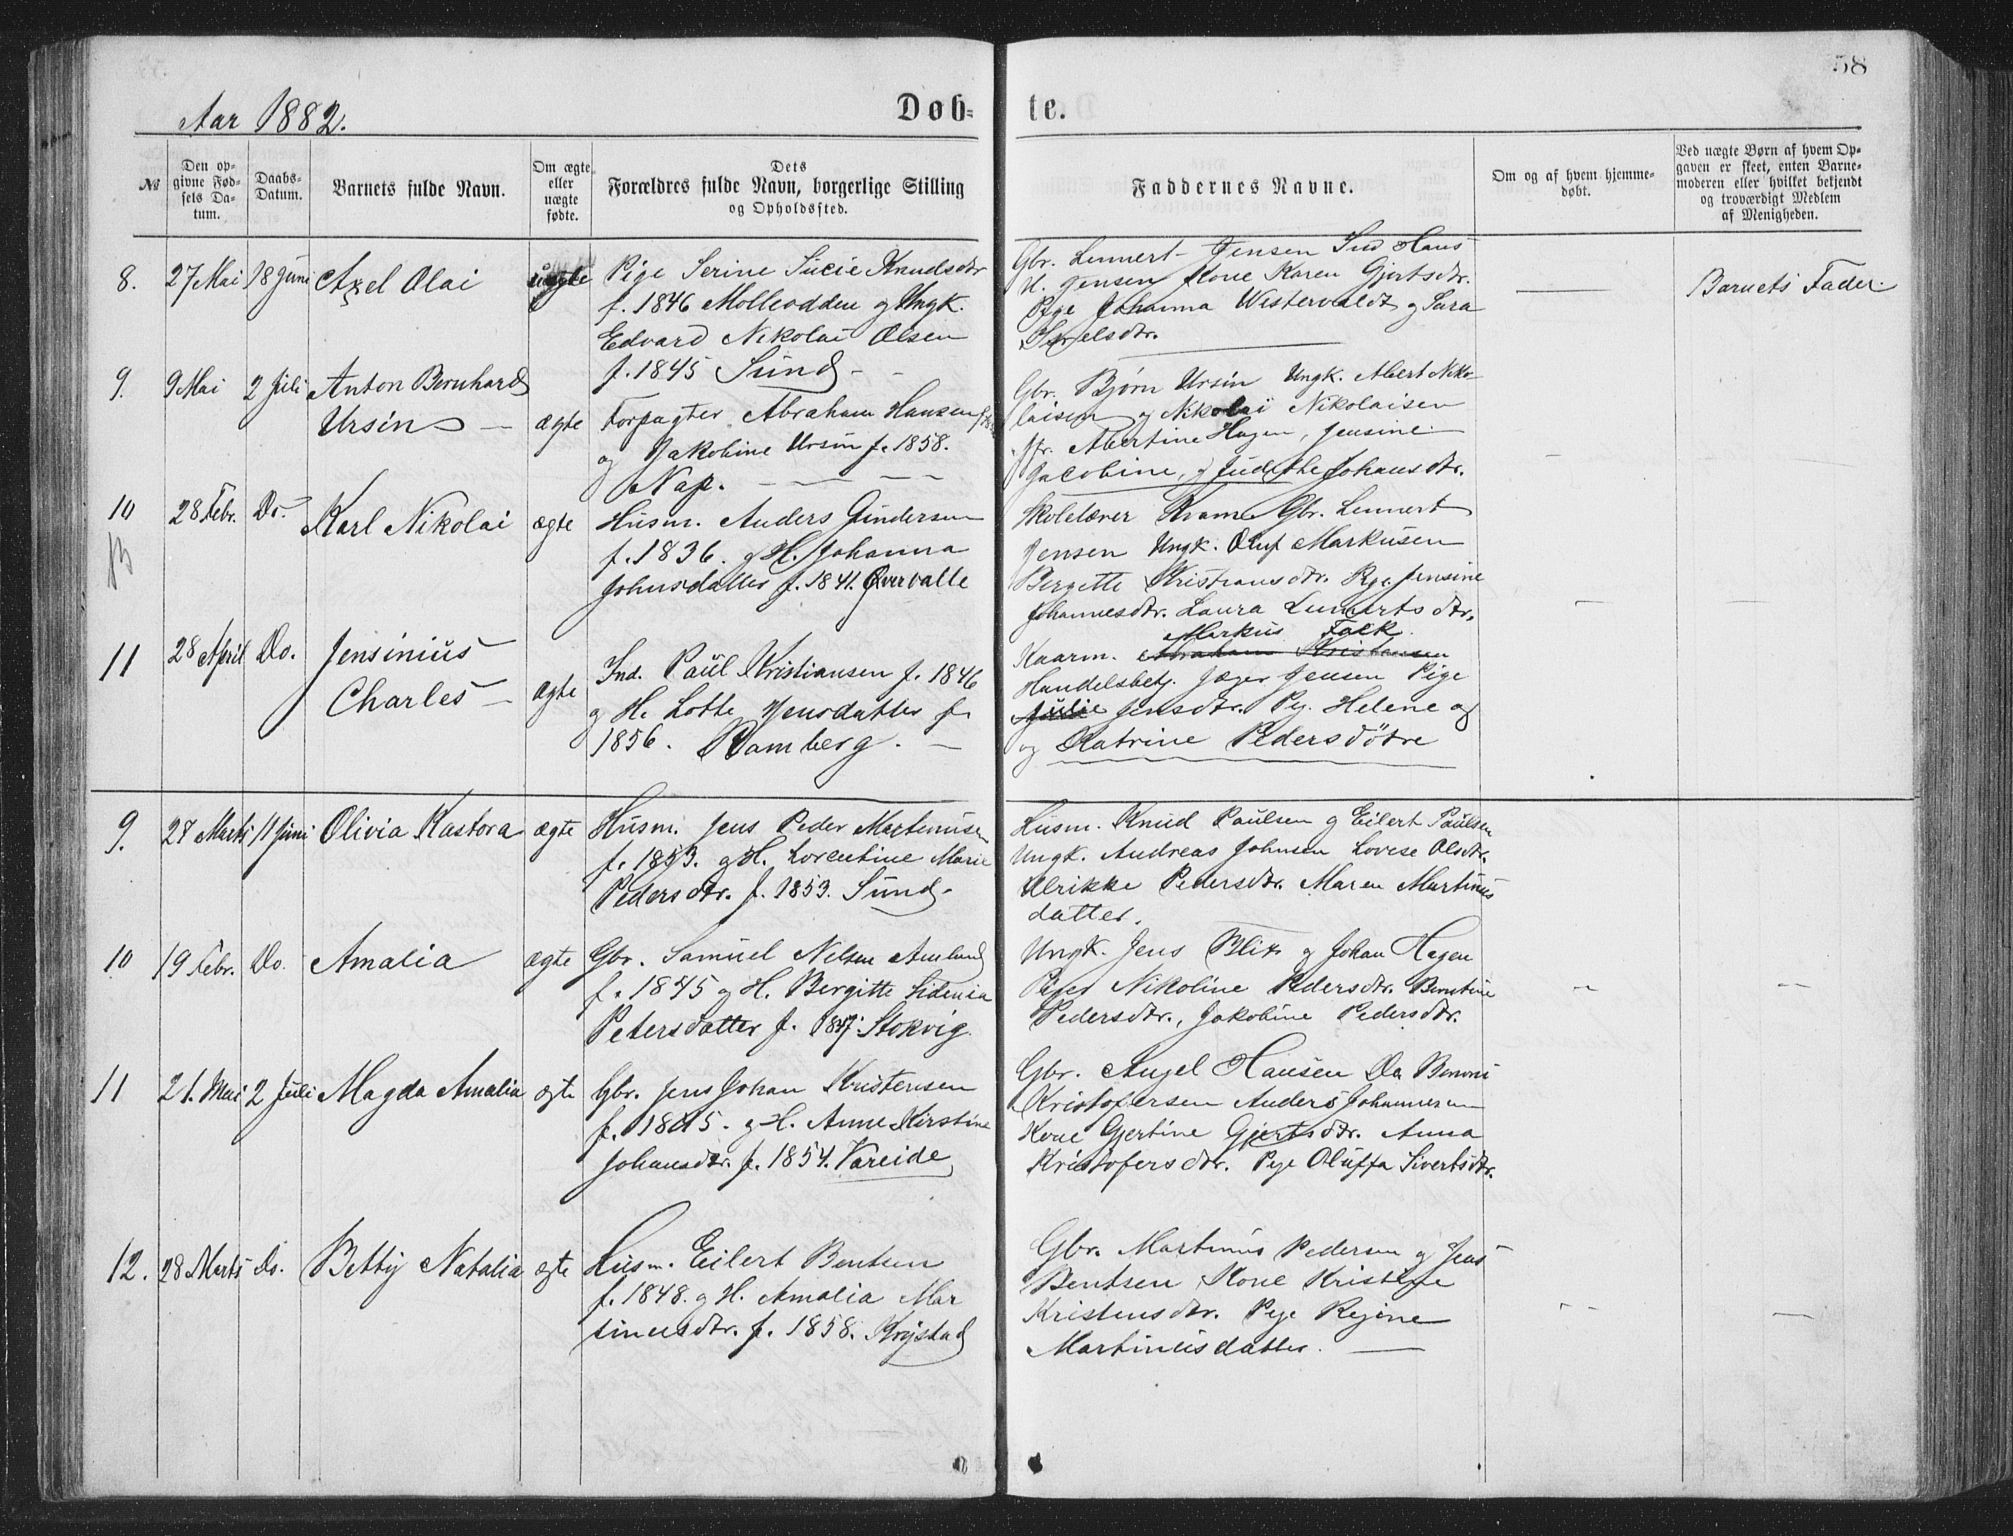 58
Aar 1882.
Døb-
te.
№
Den op-
givne Fød-
sels Da-
tum.
Daabs-
Datum.
Barnets fulde Navn.
Om ægte
eller
uægte
fødte.
Dets
Forældres fulde Navn, borgerlige Stilling
og Opholdssted.
Faddernes Navne.
Om og af hvem hjemme-
døbt.
Ved uægte Børn af hvem Op-
gaven er skeet, enten Barne-
moderen eller hvilket bekjendt
og troværdigt Medlem
af Menigheden.
8. 27 Mai 18 Juni Axel Olai uægte
Pige Serine Lucie Knudsdtr
f. 1846 Molleodden og Ungk.
Edvard Nikolai Olsen
f. 1845 Sund
Gbr. Lennert Jensen Sund Hans
H. Jensen Kone Karen Gjertsdtr.
Pige Johanna Westervaldt og Sara
Barnets Fader.
9. 9 Mai 2 Juli Anton Bernhard
Ursin ægte
Forpagter Abraham Hansen
og Jakobine Ursin f. 1858.
Nap.
Gbr. Bjørn Ursin Ungk. Albert Niko-
laisen og Nikolai Nikolaisen
Jfr. Albertine Hagen, Jensine
Jacobine, og Judithe Johansdtr.
10 28 Febr. Do. Karl Nikolai ægte
Husm. Anders Gundersen
f. 1836. og H. Johanna
Johnsdatter f. 1841. Øvervalle
Skolelærer Kvam Gbr. Lennert
Jensen Ungk. Oluf Markusen
Bergitte Kristiansdtr. Pige Jensine
Johannesdtr. Laura Lennertsdtr.
11 28 April Do. Jensinius
Charles ægte
Ind. Paul Kristiansen f. 1846
og H. Lotte Jensdatter f.
1856. Ramberg.
Markus Falk.
Kaarm. Abraham Kristiansen
Handelsbetj. Jæger Jensen Pige
Julie Jensdtr. Pg. Helene og
og Katrine Pedersdøtre
9. 28 Marts 11 Juni Olivia Kastora ægte
Husm. Jens Peder Martinusen
f. 1853. og H. Lorentine Marie
Pedersdtr. f. 1853. Sund
Husm. Knud Paulsen og Eilert Paulsen
Ungk. Andreas Johnsen Lovise Olsdtr.
Ulrikke Pedersdtr. Maren Martinus
datter.
10 19 Febr. Do. Amalia ægte
Gbr. Samuel Nelsen Amlund
f. 1845 og H. Bergitte Sidenia
Petersdatter f. 1847. Stokvig.
Ungk. Jens Blix og Johan Hagen
Piger Nikoline Pedersdtr. Berntine
Pedersdtr., Jakobine Pedersdtr.
11 21. Mai 2 Juli Magda Amalia ægte
Gbr. Jens Johan Kristensen
f. 1845. og H. Anne Kirstine
Johansdtr. f. 1854. Vareide
Gbr. Angel Hansen Do Benoni
Kristofersen Anders Johannesen
Kone Gjertine Gjertsdtr. Anna
Kristofersdtr. Pige Oluffa Sivertsdtr.
12. 28 Marts Do. Betty Natalia ægte
Husm. Eilert Bentsen
f. 1848. og H. Amalia Mar
tinusdtr. f. 1858. Krystad
Gbr. Martinus Pedersen og Jens
Bentsen Kone Kristine
Kristensdtr. Pige Regine
Martinusdatter.